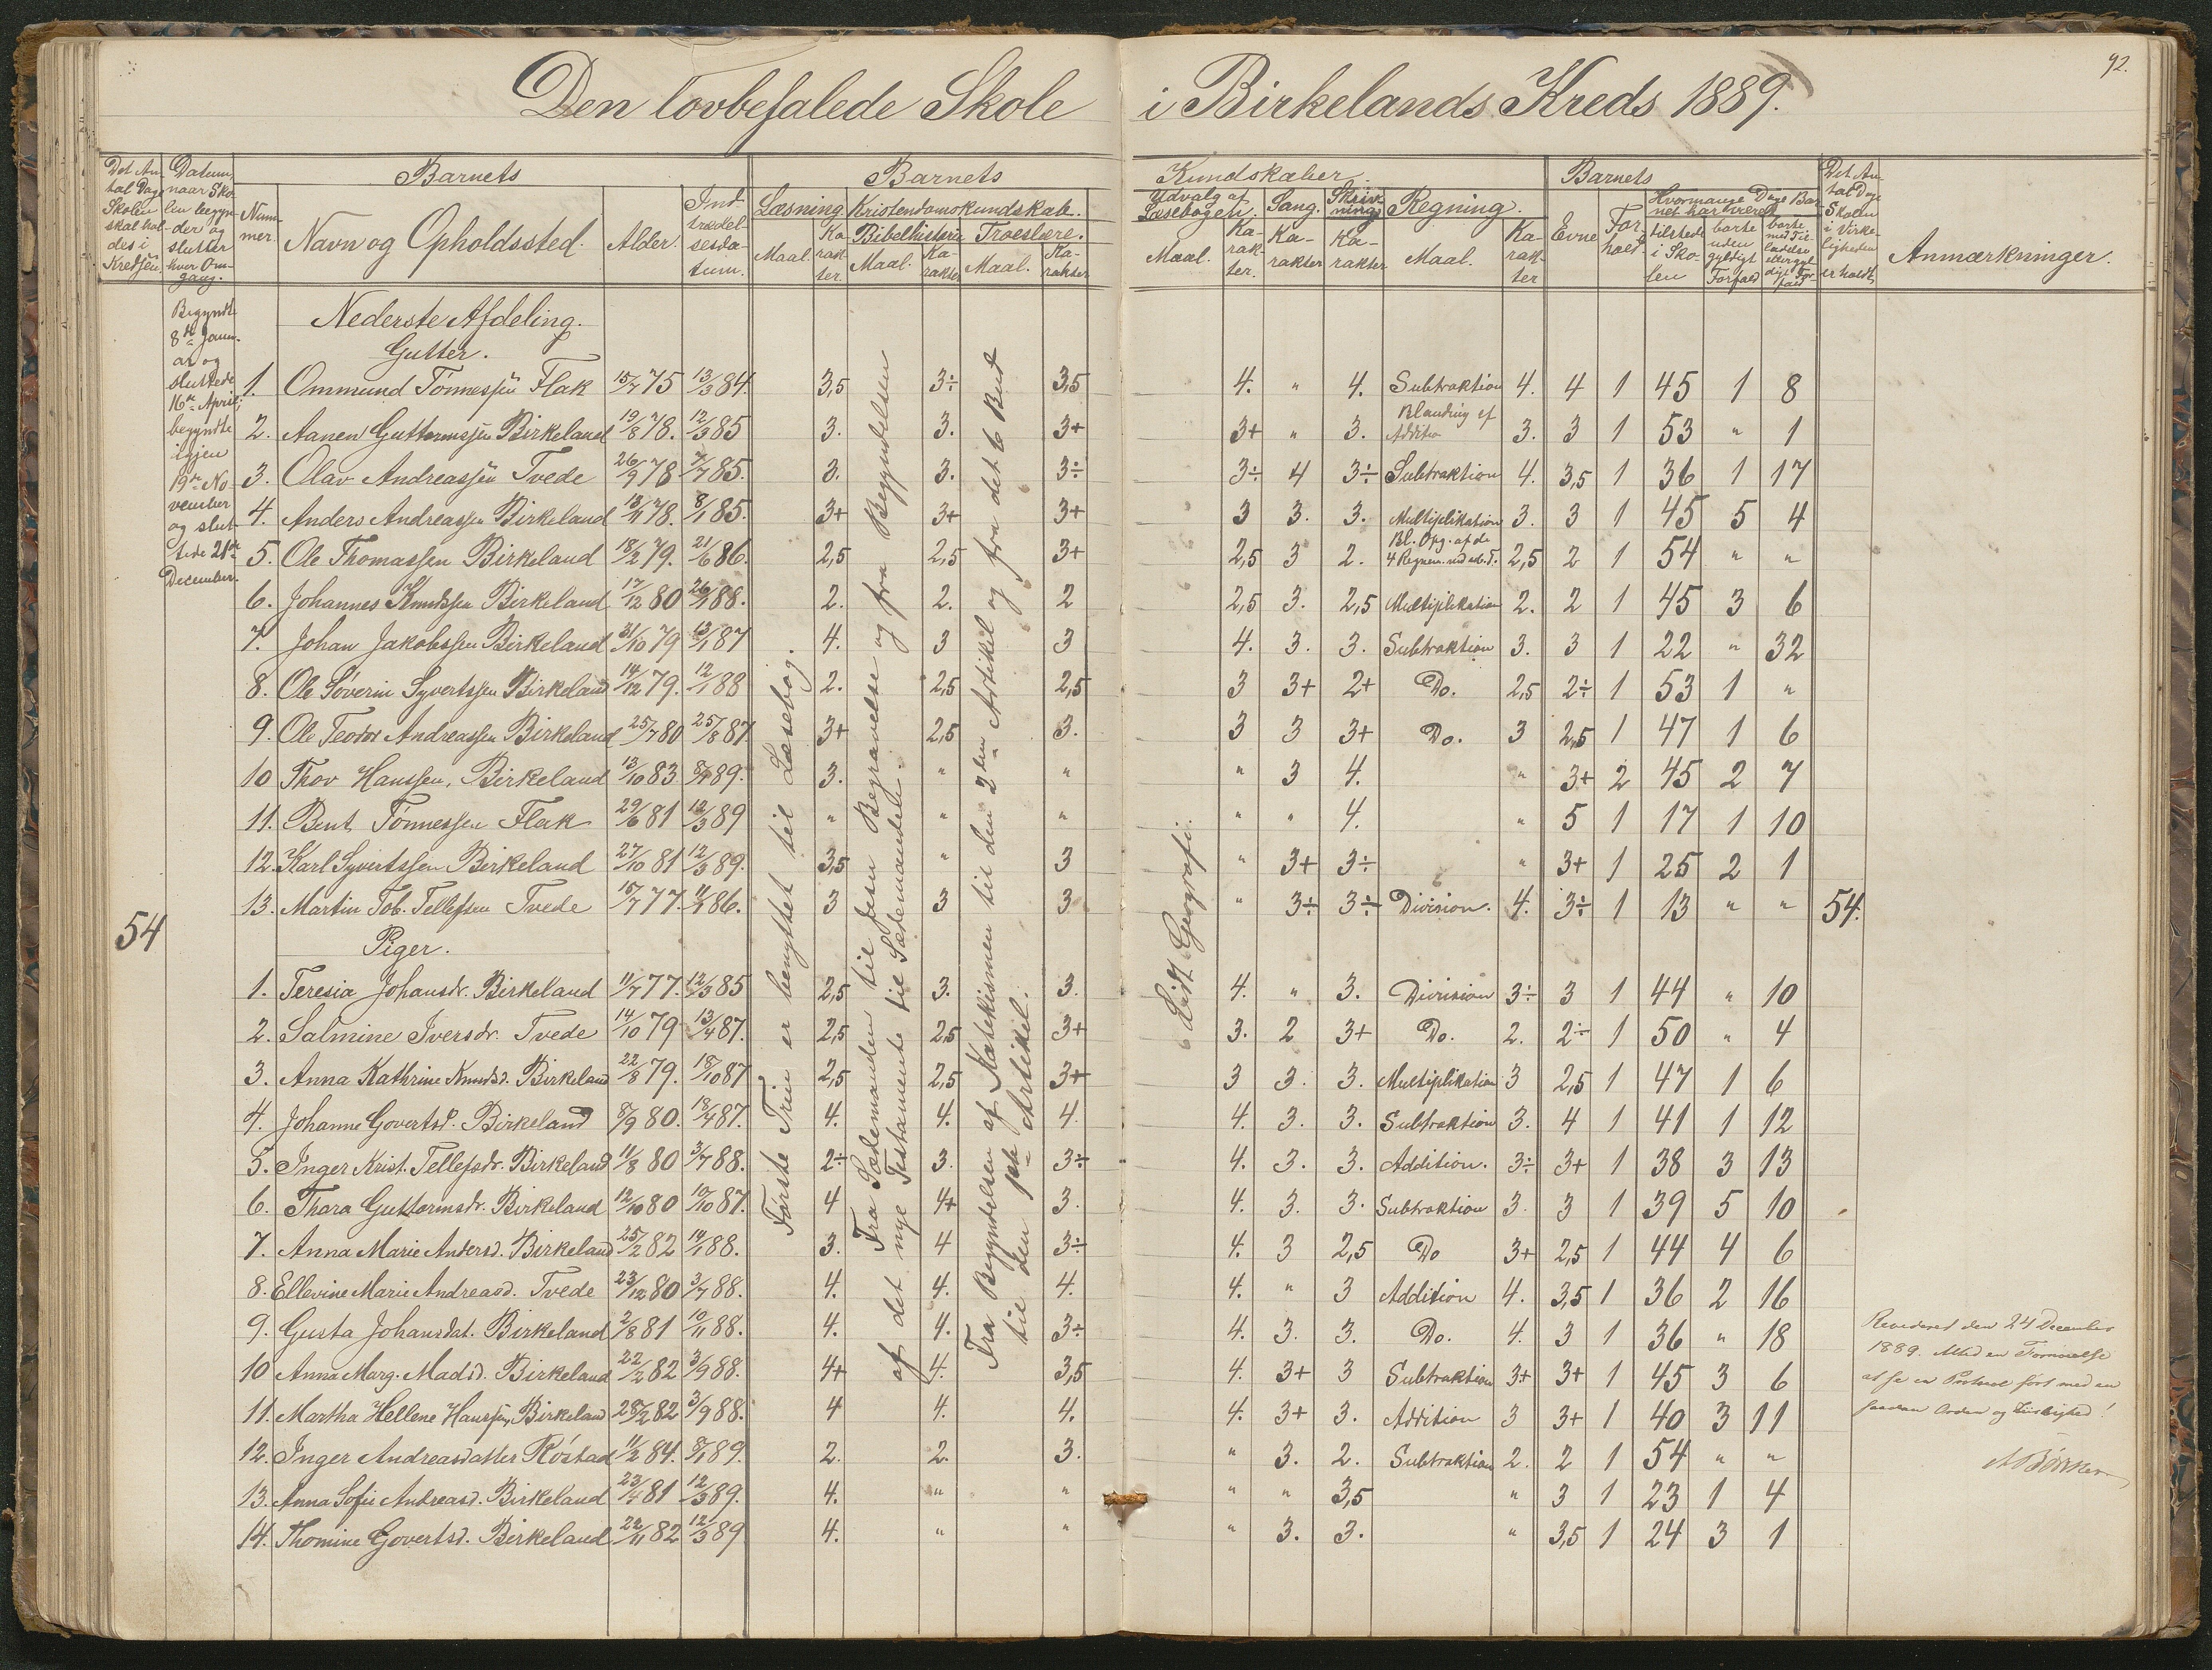 92.
Den lovbefalede Skole i Birkelands Kreds 1889.
Det Antal Dage Skolen skal holdes i Kredsen
Datum, naar Skolen begynder og slutter hver Omgang.
Barnets
Nummer
Navn og Opholdssted.
Alder.
Indtrædelsesdatum.
Barnets Kundskaber.
Læsning
Maal.
Karakter.
Kristendomskundskab.
Bibelhistorie
Maal.
Karakter
Troeslære.
Maal.
Karakter
Udvalg af Læsebogen.
Maal.
Karakter.
Sang.
Karakter
Skrivning
Karakter
Regning.
Maal.
Karakter
Barnets
Evne
Forhold.
Hvormange Dage Barnet har været
tilstede i Skolen
borte uden gyldigt Forfald
borte med Tilladelse eller gyldigt Forfald
Det Antal Dage Skolen i Virkeligheden er holdt
Anmærkninger.
Begyndte
8de Janu-
ar og
sluttede
16de April;
begyndte
igjen
19de No-
vember
og slut-
tede 21de
December.
54
Første Trin er benyttet til Læsebog.
Fra Sædemanden til Jesu Begravelse og fra Begyndelsen
af det nye Testamente til Sædemanden.
Fra Begyndelsen af Katekismen til den 2den Artikel og fra det 6 Bud
til den Artikel.
Lidt Geografi.
Nederste Afdeling.
Gutter.
1. Ommund Tønnessen Flak 15/7 75 13/3 84. 3,5 3÷ 3,5 4. " 4. Subtraktion 4. 4 1 45 1 8
2. Aanen Guttormssen Birkeland 19/8 78. 12/3 85 3. 3. 3+ 3+ " 3. Blanding af Additio 3. 3 1 53 " 1
3. Olav Andreassen Tvede 26/9 78 7/7 85. 3. 3. 3÷ 3÷ 4 3÷ Subtraktion 4. 3,5 1 36 1 17
4. Anders Andreassen Birkeland 13/11 78. 8/1 85. 3+ 3+ 3+ 3 3. 3. Multiplikation 3. 3 1 45 5 4
5. Ole Thomassen Birkeland 18/2 79. 21/6 86. 2,5 2,5 3+ 2,5 3 2. Bl. Opg. af de 4 Regnem. 2,5 2 1 54 " "
6. Johannes Knudssen Birkeland 17/12 80 26/1 88. 2. 2. 2 2,5 3. 2,5 Multiplikation 2. 2 1 45 3 6
7. Johan Jakobssen Birkeland 31/10 79 13/1 87 4. 3 3 4. 3. 3. Subtraktion 3. 3 1 22 " 32
8. Ole Søverin Syvertssen Birkeland 14/12 79. 12/1 88 2. 2,5 2,5 3 3+ 2+ Do. 2,5 2÷ 1 53 1 "
9. Ole Teodor Andreassen Birkeland 25/7 80 25/8 87 3+ 2,5 3. 3 3 3+ Do. 3 2,5 1 47 1 6
10 Thov Hanssen, Birkeland 13/10 83 8/1 89. 3. " " " 3 4. " 3+ 2 45 2 7
11. Bent Tønnessen Flak 29/6 81 12/3 89 " " " " " 4. " 5 1 17 1 10
12. Karl Syvertssen Birkeland 27/10 81 12/3 89. 3,5 " 3 " 3+ 3÷ " 3+ 1 25 2 1
13. Martin Tob. Tellefsen Tvede 15/7 77. 11/1 86. 3 3 3 " 3÷ 3÷ Division. 4. 3÷ 1 13 " " 54.
Piger.
1. Teresia Johansdr. Birkeland 11/7 77. 12/3 85 2,5 3. 3. 4. " 3. Division 3÷ 3 1 44 " 10
2. Salmine Iversdr. Tvede 14/10 79 13/4 87. 2,5 2,5 3+ 3. 2 3+ Do. 2. 2÷ 1 50 " 4
3. Anna Kathrine Knudsd. Birkeland 22/8 79. 18/10 87 2,5 2,5 3+ 3 3. 3. Multiplikation 3 2,5 1 47 1 6
4. Johanne Govertsd. Birkeland 8/9 80. 13/4 87. 4. 4. 4. 4. 3. 3. Subtraktion 3. 4 1 41 1 12
5. Inger Krist. Tellefsdr. Birkeland 11/8 80 3/7 88. 2÷ 3. 3÷ 4. 3. 3. Addition. 3÷ 3+ 1 38 3 13
6. Thora Guttormsdr. Birkeland 12/10 80 19/10 87. 4 4+ 3. 4. 3. 3. Subtraktion 3. 3 1 39 5 10
7. Anna Marie Andersd. Birkeland 25/2 82 19/1 88. 3. 4 3÷ 4. 3 2,5 Do 3+ 2,5 1 44 4 6
8. Ellevine Marie Andreasd. Tvede 23/12 80 3/7 88. 4. 4. 4. 4. " 3 Addition 4. 3,5 1 36 2 16
9. Gusta Johansdat. Birkeland 2/8 81 10/11 88. 4. 4. 3÷ 4. 3. 3. Do. 4. 3 1 36 " 18
10 Anna Marg. Madsd. Birkeland 22/2 82 3/9 88. 4+ 4. 3,5 4. 3+ 3 Subtraktion 3+ 3+ 1 45 3 6
11. Martha Hellene Hanssen, Birkeland 28/2 82 3/9 88. 4 4. 4. 4. 3+ 3. Addition 3 3+ 1 40 3 11
12. Inger Andreasdatter Røstad 11/2 84. 8/1 89. 2. 2. 3. " 3. 2. Subtraktion 2. 2 1 54 " "
13. Anna Sofie Andreasd. Birkeland 23/4 81 12/3 89. 4. " " " " 3,5 " 3 1 23 1 4
14. Thomine Govertsd. Birkeland 22/11 82 12/3 89 4. " " " 3. 3. " 3,5 1 24 3 1
Revideret den 24 December
1889. Med en Fornøielse
at se en Protocol ført med en
saadan Orden og !